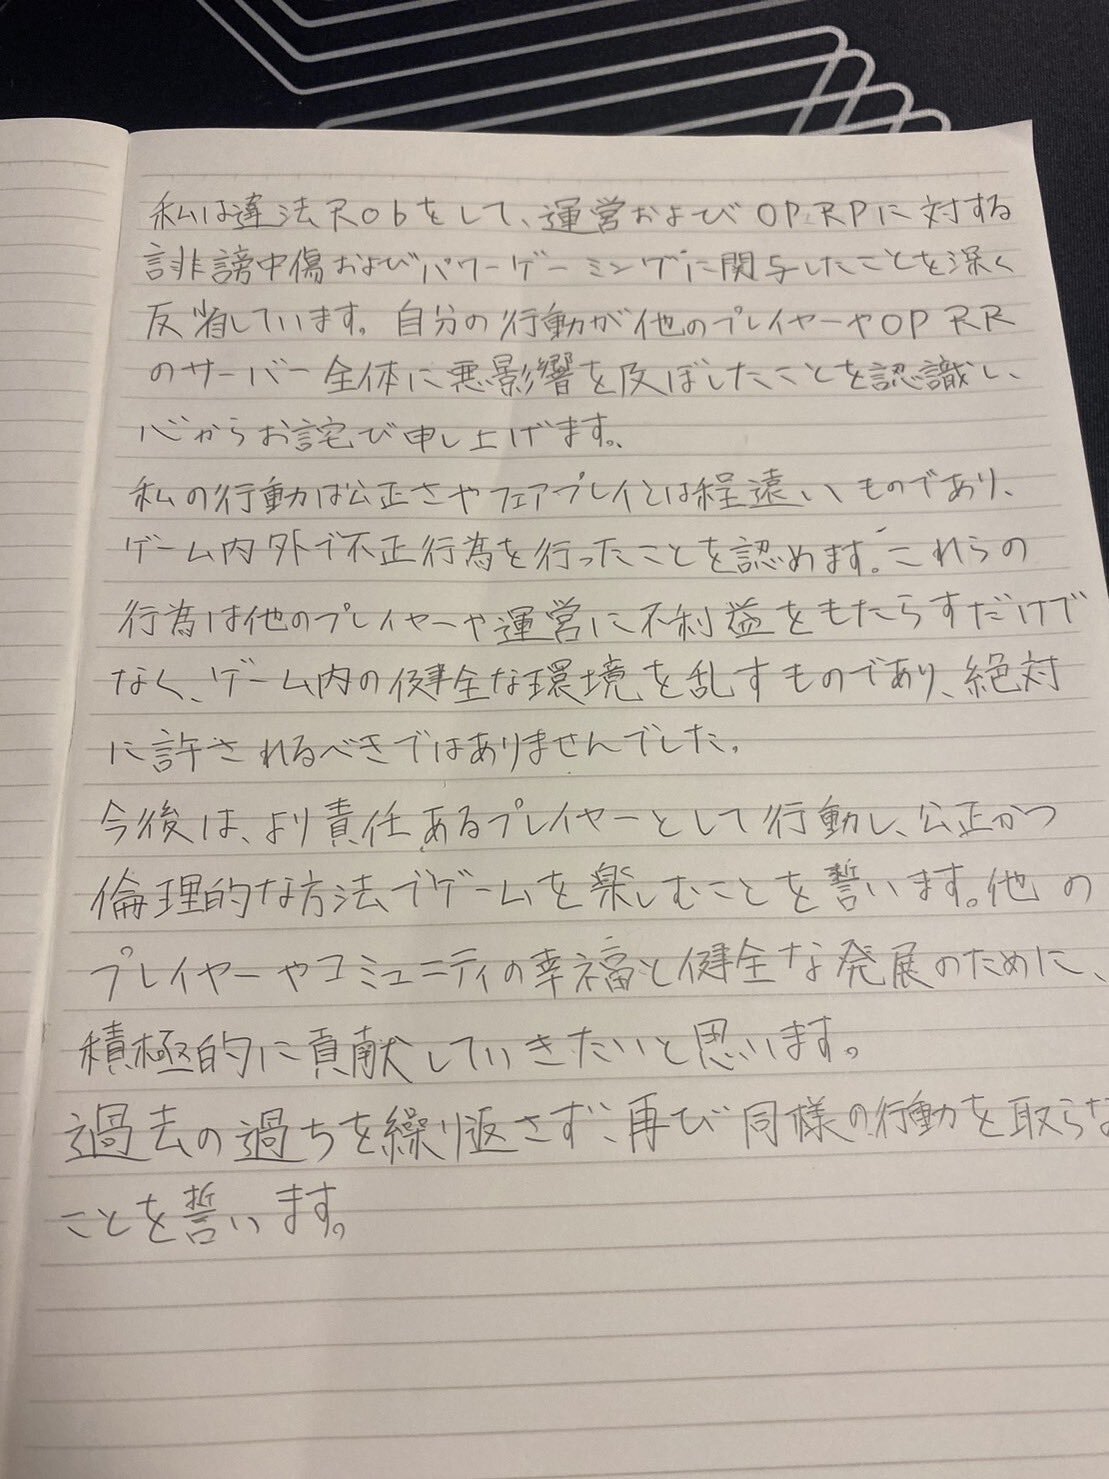 私は違法Robをして、運営およびOPRPに対する
誹謗中傷およびパワーゲーミングに関与したことを深く
反省しています。自分の行動が他のプレイヤーやOPRR
のサーバー全体に悪影響を及ぼしたことを認識し、
心からお詫び申し上げます。
私の行動は公正さやフェアプレイとは程遠いものであり、
ゲーム内外で不正行為を行ったことを認めます。これらの
行為は他のプレイヤーや運営に不利益をもたらすだけで
なく、ゲーム内の健全な環境を乱すものであり、絶対
に許されるべきではありませんでした。
今後は、より責任あるプレイヤーとして行動し、公正かつ
倫理的な方法でゲームを楽しむことを誓います。他の
プレイヤーやコミュニティの幸福と健全な発展のために、
積極的に貢献していきたいと思います。
過去の過ちを繰り返さず、再び同様の行動を取らな
ことを誓います。